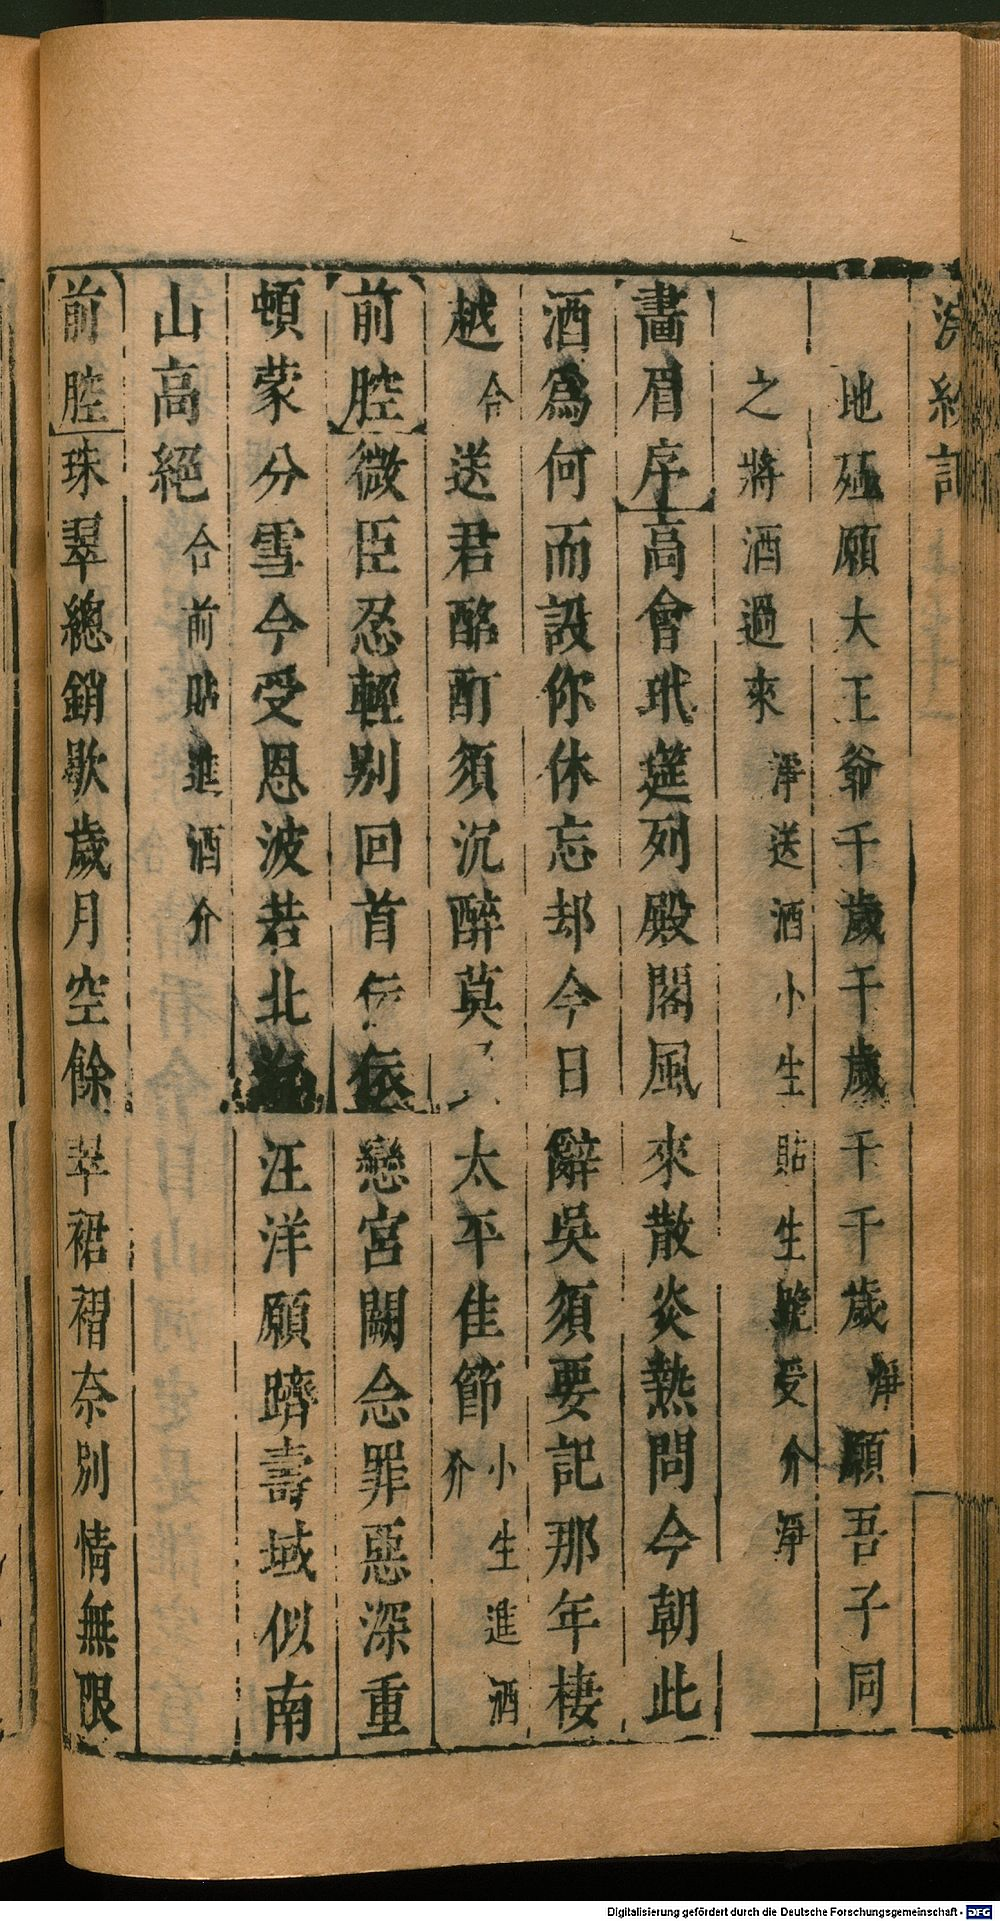 浣紗記
地疆願大王爺千歲千歲千千歲淨願吾子同
之將酒過來淨送酒小生貼生跪受介淨
畫眉序高會玳筵列殿閣風來散炎熱問今朝此
酒爲何而設你休忘却今日辭吳須要記那年棲
越合送君酩酊須沉醉莫太平佳節小生進酒介
前腔微臣忍輕別回首依依戀宮闕念罪惡深重
頓蒙分雪今受恩波若北海汪洋願躋壽域似南
山高絕合前貼進酒介
前腔珠翠總銷歇歲月空餘翠裙褶奈別情無限
Digitalisierung gefördert durch die Deutsche Forschungsgemeinschaft - DFG